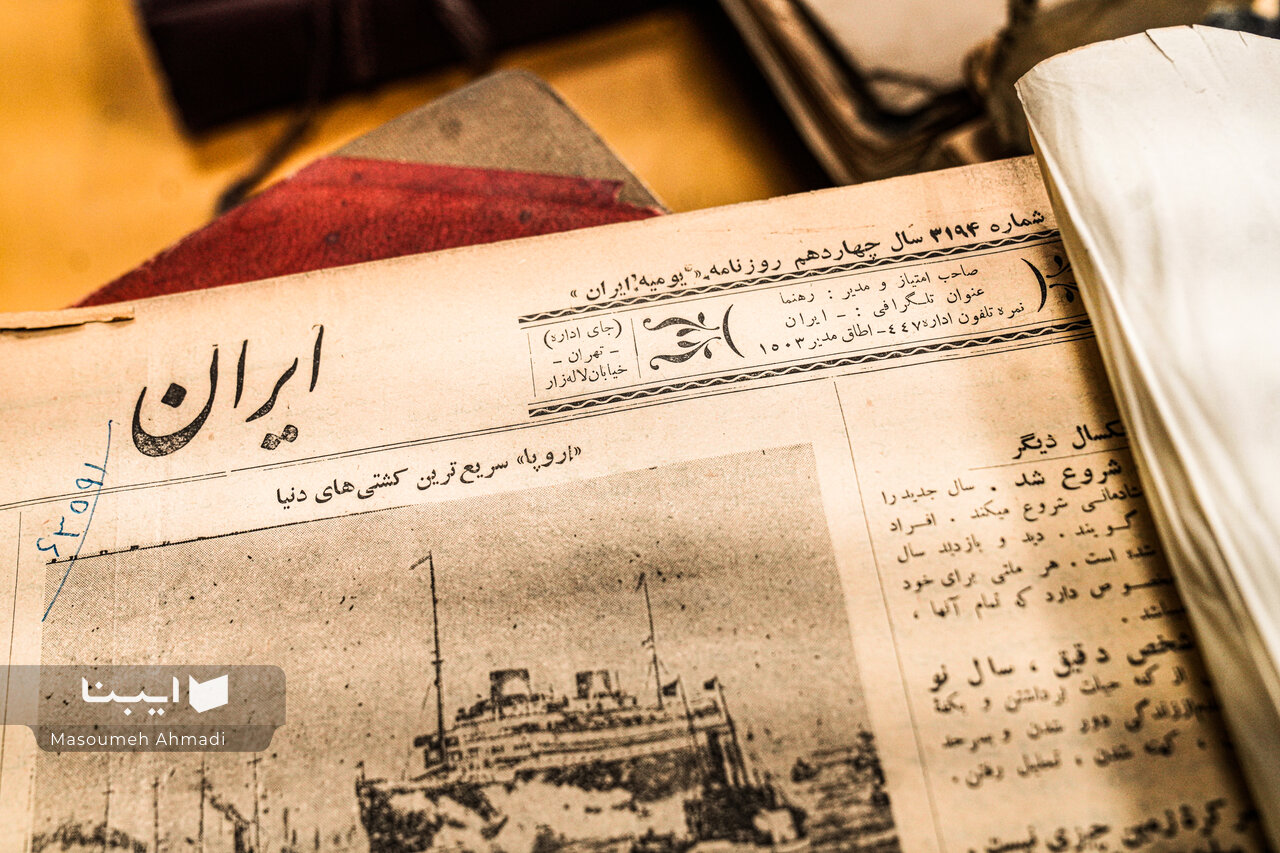 شماره ۳۱۹۴ سال چهاردهم روزنامه «یومیه ایران»
صاحب امتیاز و مدیر : رهنما
عنوان تلگرافی : - ایران
نمره تلفون اداره ۴۴۷ - اطاق مدیر ۱۵۰۳
(جای اداره)
- تهران -
خیابان لاله‌زار
ایران
«اروپا» سریع‌ترین کشتی‌های دنیا
یکسال دیگر
شروع شد . سال جدید را
شادمانی شروع میکند . افراد
گویند . دید و بازدید سال
شده است . هر ملتی برای خود
دارد که تمام آنها ،
دقیق ، سال نو
از که حیات
زندگی دور شدن و
کهنه شدن ، تحلیل رفتن .
کرهٔ زمین چیزی نیست
ایبنا
Masoumeh Ahmadi